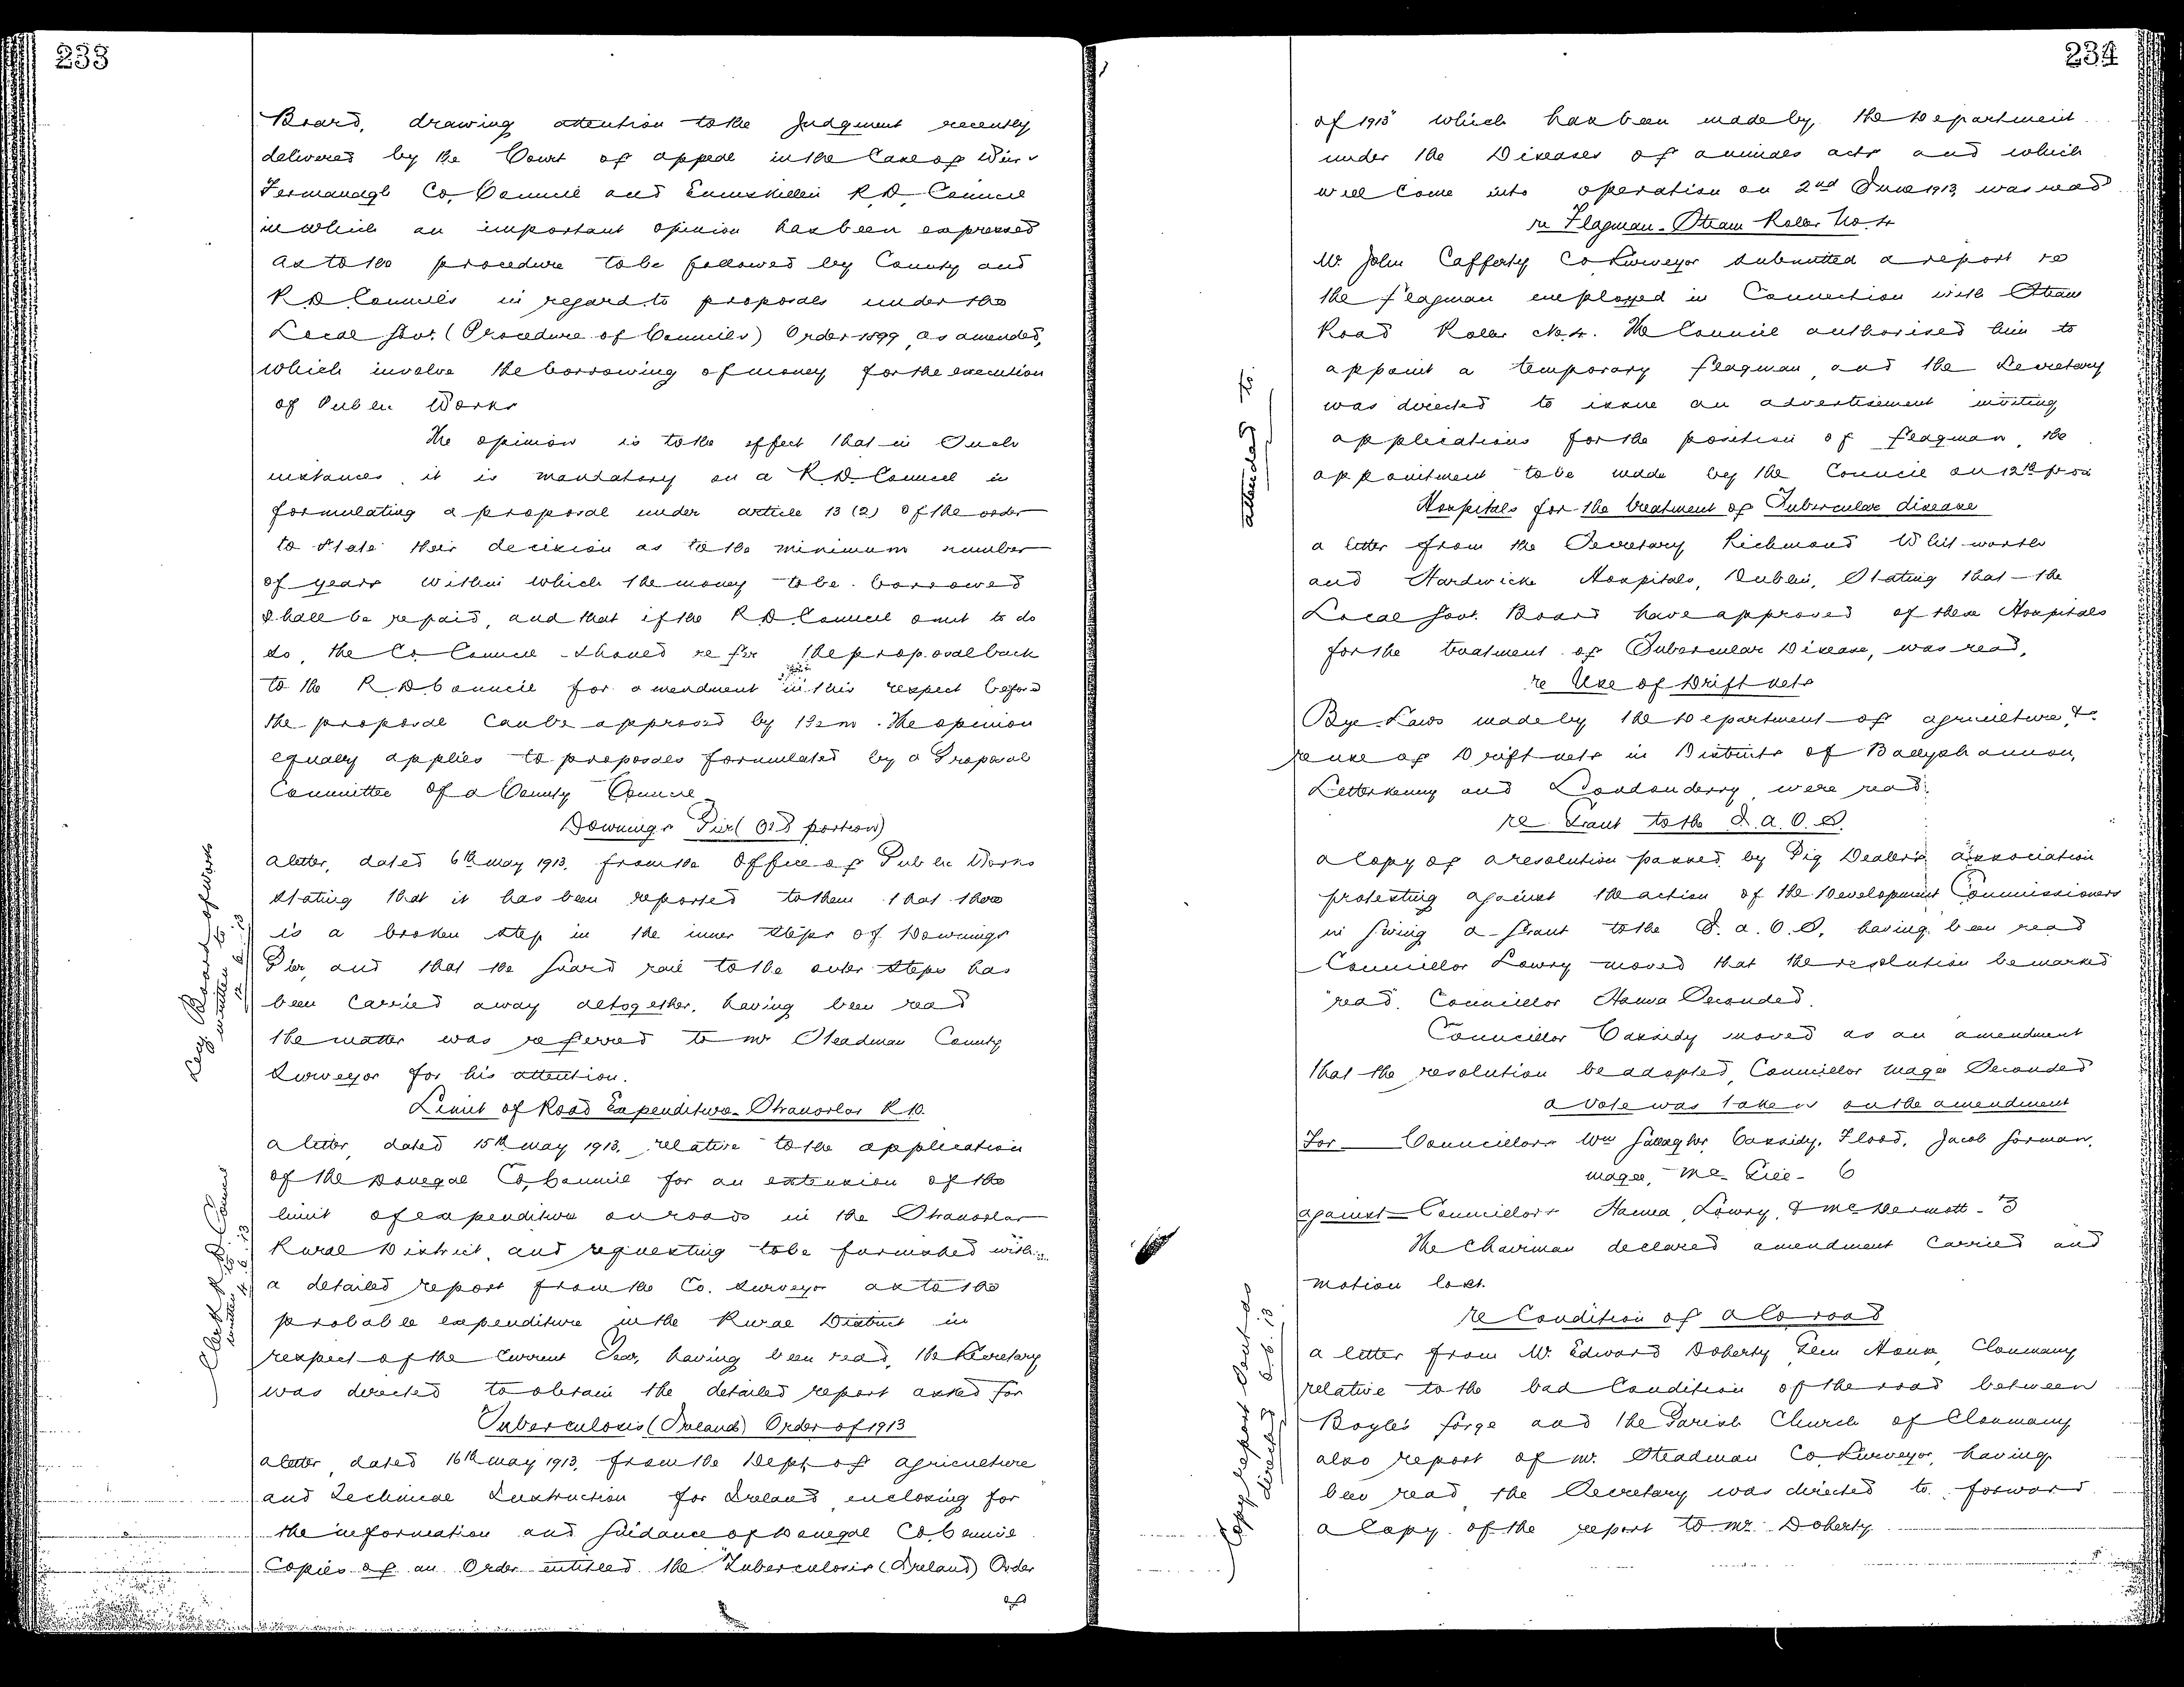 233
Board, drawing attention to the Judgment recently
delivered by the Court of appeal in the Case of
Fermanagh Co. Council and Enniskillen R.D. Council
in which an important opinion has been expressed
as to the procedure to be followed by County and
R.D. Councils in regard to proposals under the
Local Govt. (Procedure of Councils) Order 1899, as amended,
which involve the borrowing of money for the execution
of Public Works
The opinion is to the effect that in Such
instances, it is mandatory on a R.D. Council in
formulating a proposal under article 13 (2) of the order
to State their decision as to the minimum number
of years within which the money to be borrowed
shall be repaid, and that if the R.D. Council omit to do
so, the Co. Council should refer the proposal back
to the R.D. Council for amendment in this respect before
the proposal can be approved by them. The opinion
equally applies to proposals formulated by a Proposal
Committee of a County Council
Downings Pier (Old portion)
a letter, dated 6th May 1913, from the Office of Public Works
stating that it has been reported to them that there
is a broken step in the inner steps of Downings
Pier, and that the Guard rail to the outer steps has
been carried away altogether, having been read
the matter was referred to Mr Steadman County
Surveyor for his attention.
Secy Board of Works
written to
12.6.13
Limit of Road Expenditure - Stranorlar R.D.
a letter, dated 15th May 1913, relative to the application
of the Donegal Co. Council for an extension of the
limit of expenditure on roads in the Stranorlar
Rural District, and requesting to be furnished with
a detailed report from the Co. Surveyor as to the
probable expenditure in the Rural District in
respect of the Current Year, having been read, the Secretary
was directed to obtain the detailed report asked for
Clerk R.D. Council
written to
4.6.13
Tuberculosis (Ireland) Order of 1913
a letter, dated 16th May 1913, from the Dept. of agriculture
and Technical Instruction for Ireland enclosing for
the information and Guidance of Donegal Co. Council
Copies of an Order entitled the "Tuberculosis (Ireland) Order
of
234
of 1913" which has been made by the Department
under the Diseases of animals acts and which
will Come into operation on 2nd June 1913, was read
re Flagman - Steam Roller No. 4
Mr. John Cafferty Co Surveyor submitted a report re
the flagman employed in Connection with Steam
Road Roller No. 4. The Council authorised him to
appoint a temporary flagman, and the Secretary
was directed to issue an advertisement inviting
applications for the position of flagman, the
appointment to be made by the Council on 12th prox
attended to.
Hospitals for the treatment of Tubercular disease
a letter from the Secretary Richmond Whitworth
and Hardwicke Hospitals, Dublin, Stating that the
Local Govt. Board have approved of these Hospitals
for the treatment of Tubercular Disease, was read,
re Use of Drift nets
Bye-Laws made by the Department of agriculture, &c
re use of Drift nets in Districts of Ballyshannon,
Letterkenny and Londonderry were read.
re Grant to the I.A.O.S.
a Copy of a resolution passed by Pig Dealers association
protesting against the action of the Development Commissioners
in Giving a Grant to the I.A.O.S. having been read
Councillor Lowry moved that the resolution be marked
"read". Councillor Hanna Seconded.
Councillor Cassidy moved as an amendment
that the resolution be adopted, Councillor Magee Seconded
a vote was taken on the amendment
For - Councillors Wm Gallagher, Cassidy, Flood, Jacob Gorman,
Magee, Mc Gill - 6
against - Councillors Hanna, Lowry, & McDermott - 3
The Chairman declared amendment carried and
motion lost.
re Condition of a Co. road
a letter from Mr. Edward Doherty, Glen House, Clonmany
relative to the bad Condition of the road between
Boyle's forge and the Parish Church of Clonmany
also report of Mr. Steadman Co. Surveyor, having
been read, the Secretary was directed to forward
a Copy of the report to Mr. Doherty
Copy report sent as
directed 6.6.13